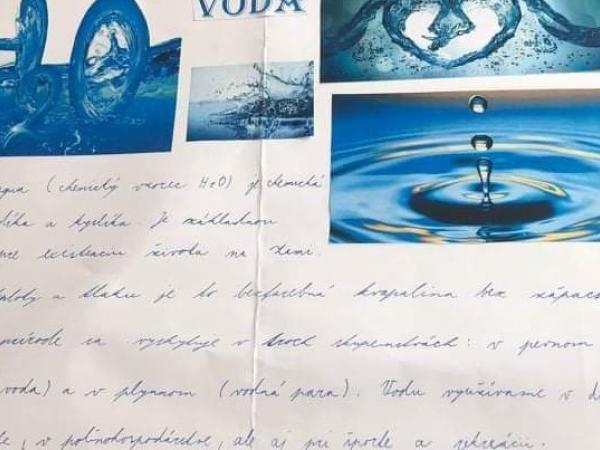 VODA
(chemický vzorec H2O) je chemická
a kyslíka. Je základnou
existenciu života na Zemi.
a tlaku je to bezfarebná kvapalina bez
sa vyskytuje v troch skupenstvách: v pevnom
voda) a v plynnom (vodná para). Vodu využívame v
v poľnohospodárstve, ale aj pri športe a rekreácii.